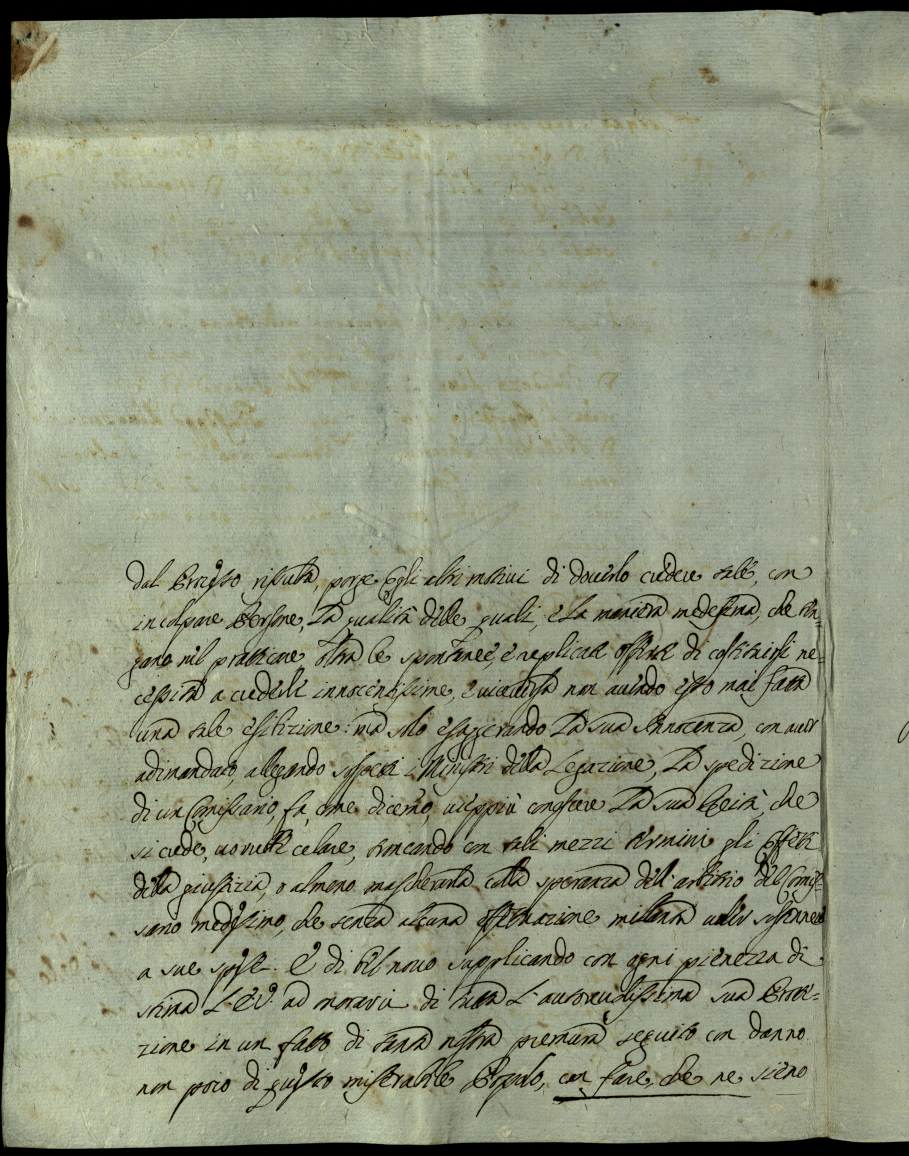 dal Processo risulta, porge Egli altri motivi di doverlo credere tale, con
incolpare Persone, la qualità delle quali, e la maniera medesima, che ten=
gano nel praticare, oltra le spontanee, e replicate offerte di costituirsi, ne=
cessita a crederle innocentissime, e non avendo esso mai fatta
una tale esibizione: ma solo esagerando la sua Innocenza, con aver
adimandato, allegando sospetti i Ministri della Legazione, la spedizione
di un Comissario, fà, come dicemo, vieppiù conoscere la sua Reità, che
si crede, vorrebbe celare, troncando con tali mezzi termini gli Effetti
della giustizia, o almeno mascherarla colla speranza dell' arbitrio del Comis=
sario medesimo, che senza alcuna estimazione militava voler sostenere
a sue spese. E di bel novo supplicando con ogni pienezza di
stima L' E.V. ad onorarci di tutta L' autorevolissima sua Prote=
zione in un fatto di tanta nostra premura seguito con danno
non poco di questo miserabile Popolo, con fare, che ne sieno